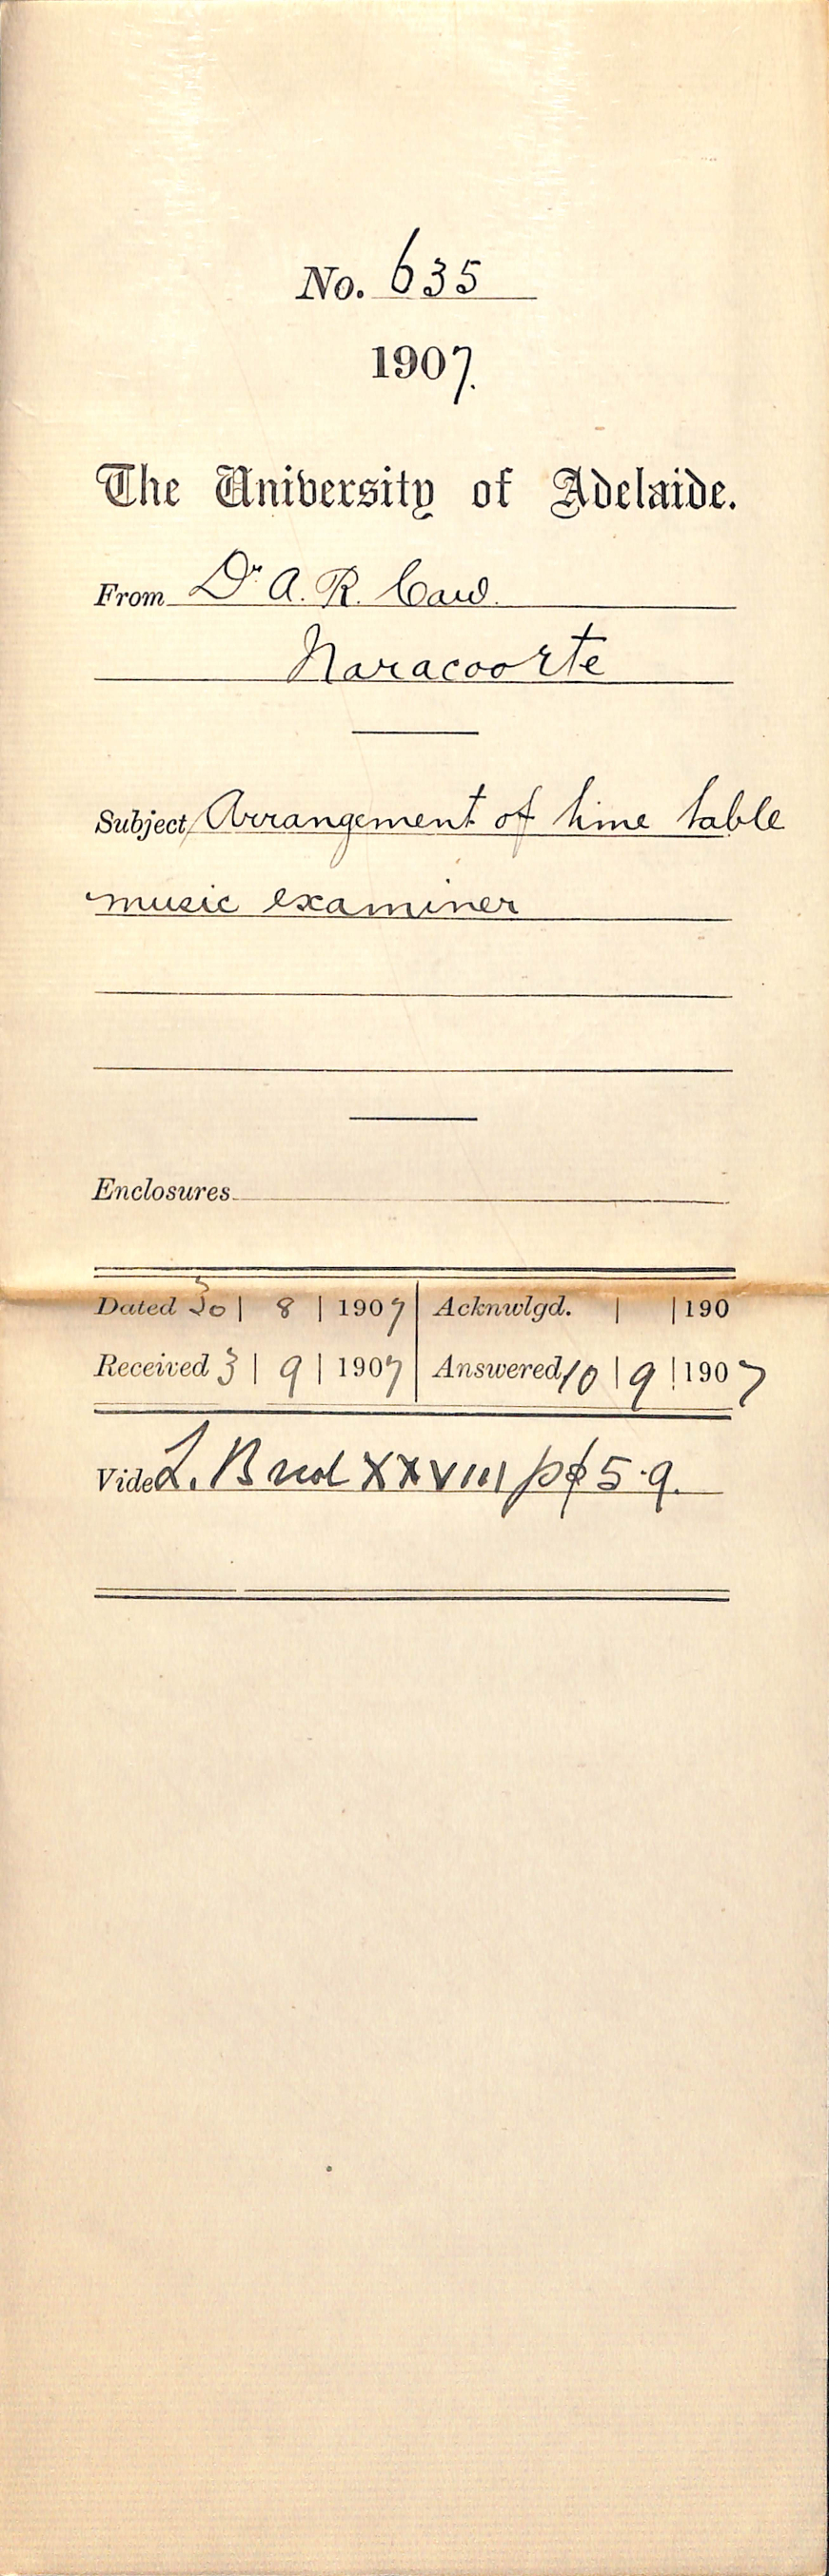 No. 635
1907.
The University of Adelaide.
From Dr. A. R. Caw.
Naracoorte
Subject Arrangement of time table
music examiner
Enclosures
Dated 30 | 8 | 1907 Acknwlgd. | | 190
Received 3 | 9 | 1907 Answered 10 | 9 | 1907
Vide L. B vol XXVIII pp 5.9.